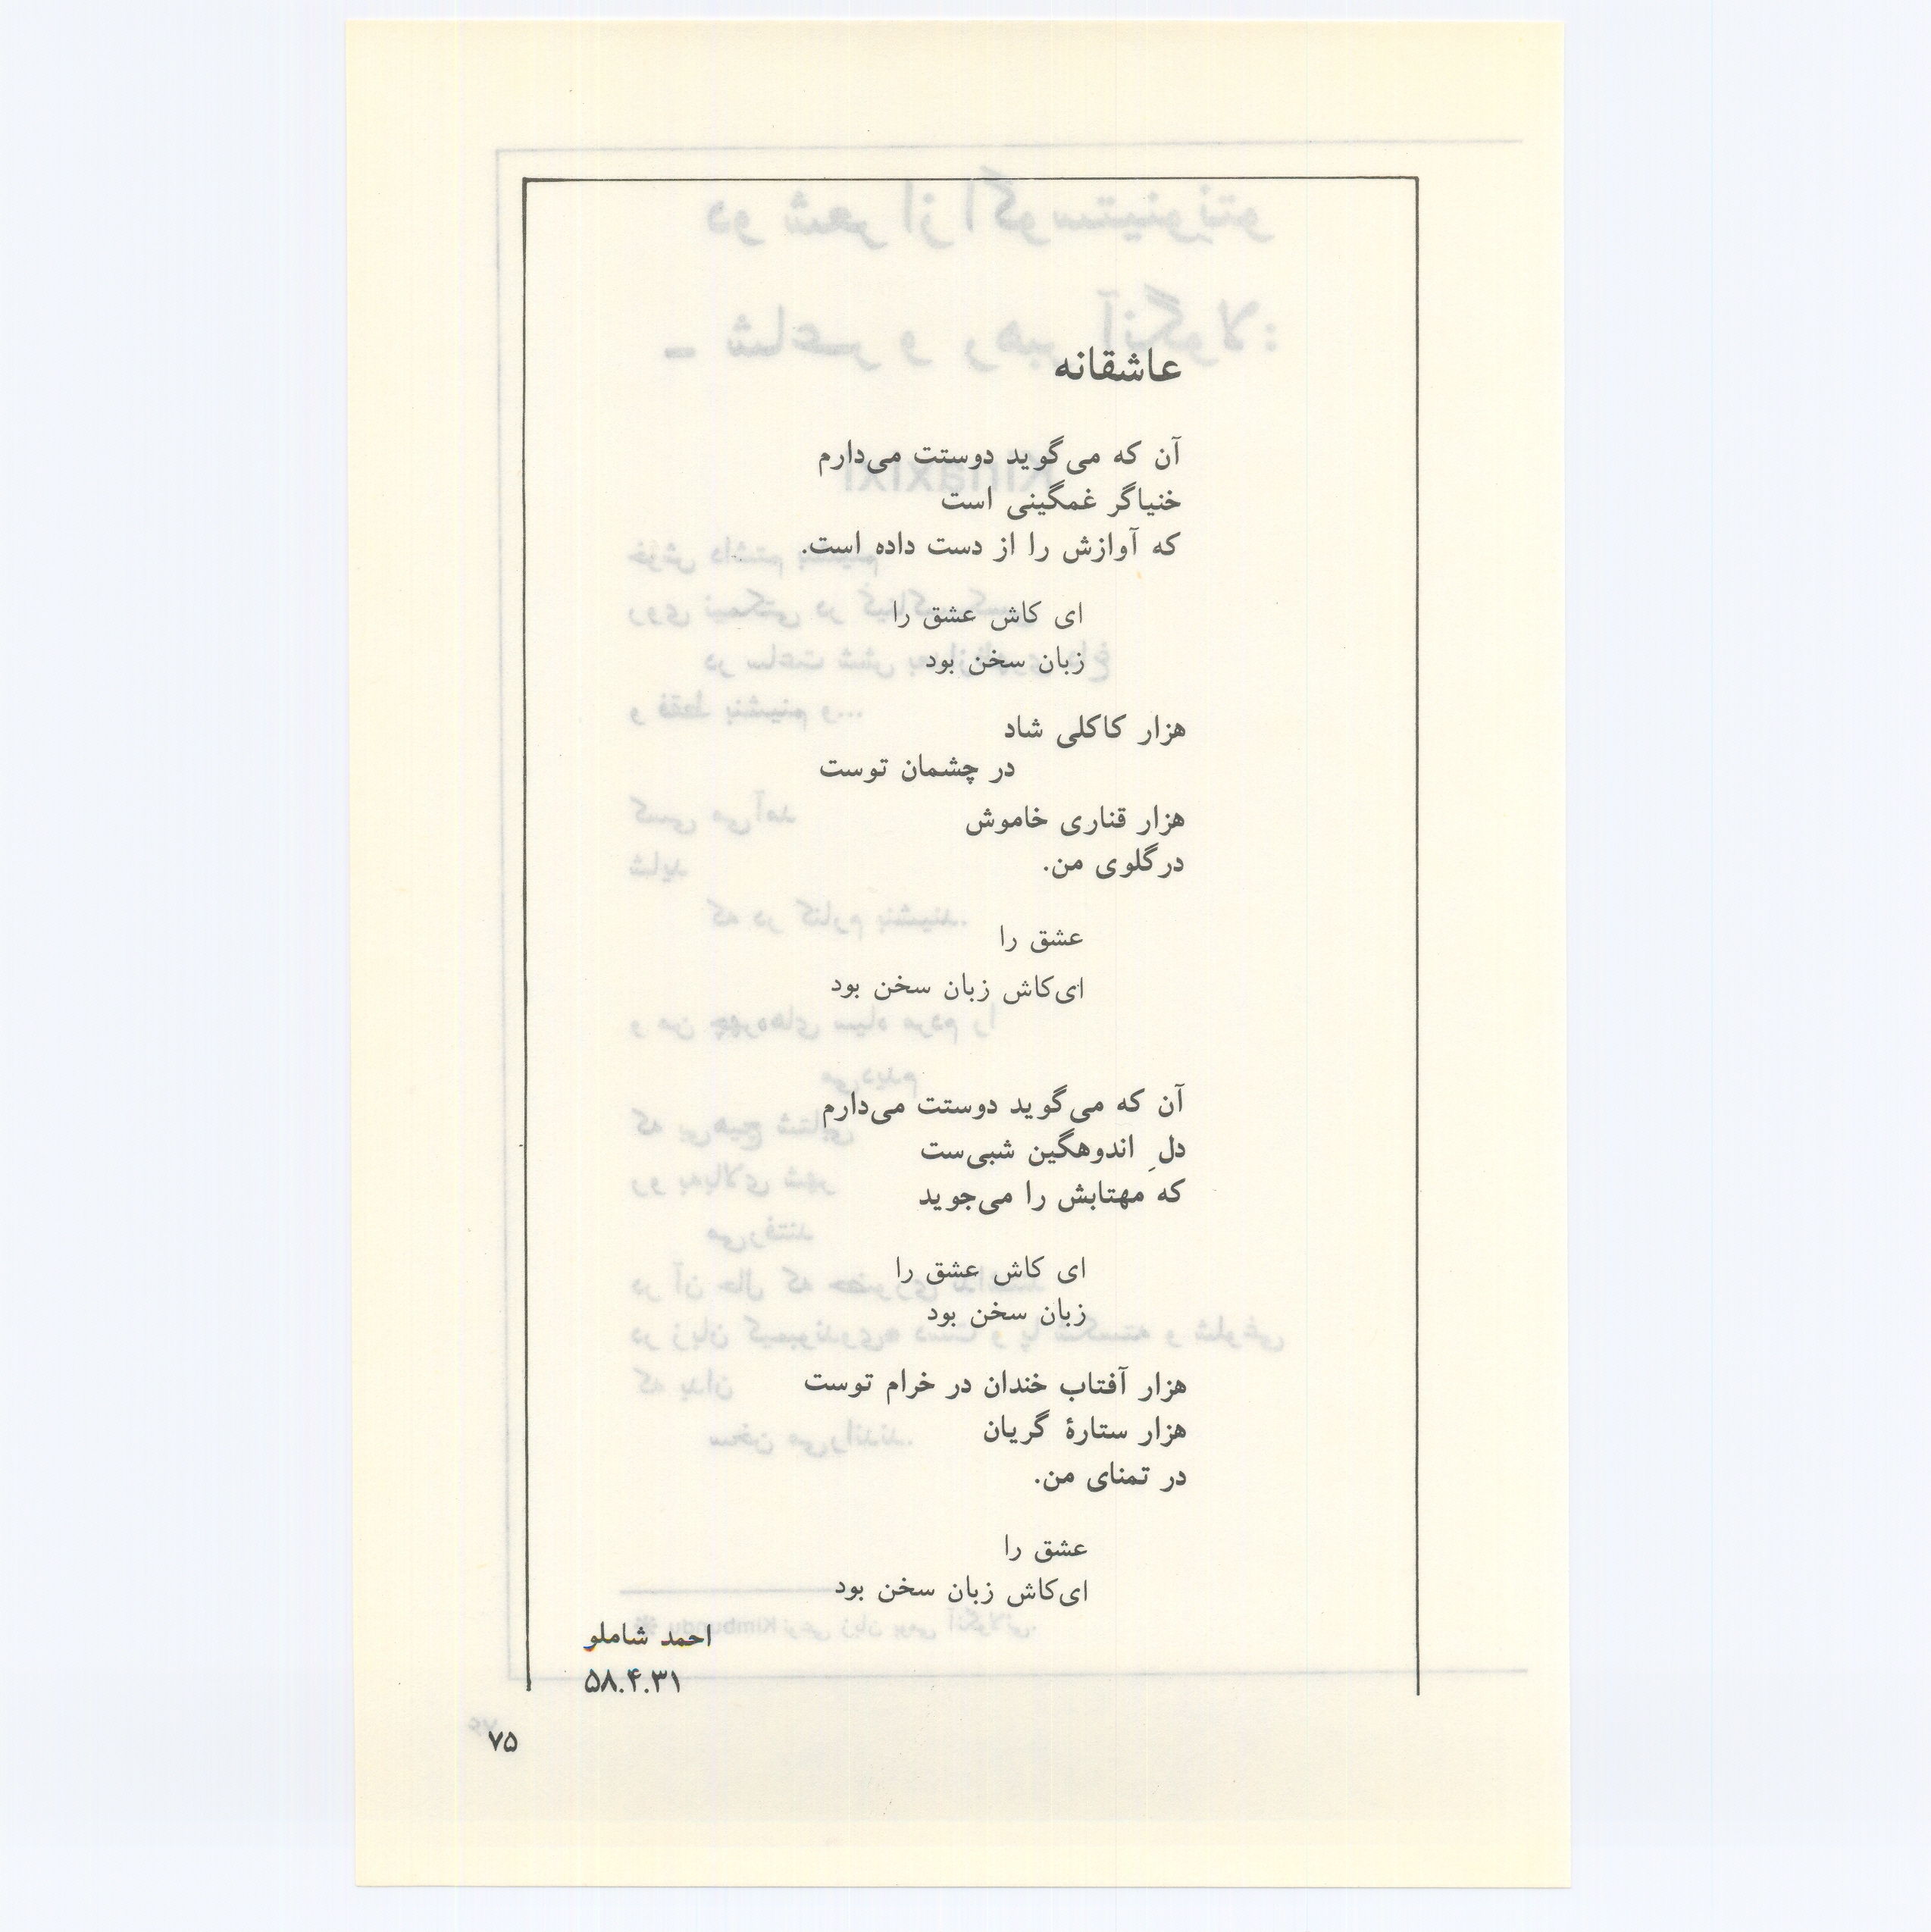 عاشقانه
آن که می‌گوید دوستت می‌دارم
خنیاگر غمگینی است
که آوازش را از دست داده است.
ای کاش عشق را
زبان سخن بود
هزار کاکلی شاد
در چشمان توست
هزار قناری خاموش
درگلوی من.
عشق را
ای‌کاش زبان سخن بود
آن که می‌گوید دوستت می‌دارم
دلِ اندوهگین شبی‌ست
که مهتابش را می‌جوید
ای کاش عشق را
زبان سخن بود
هزار آفتاب خندان در خرام توست
هزار ستارهٔ گریان
در تمنای من.
عشق را
ای‌کاش زبان سخن بود
احمد شاملو
۵۸.۴.۳۱
۷۵